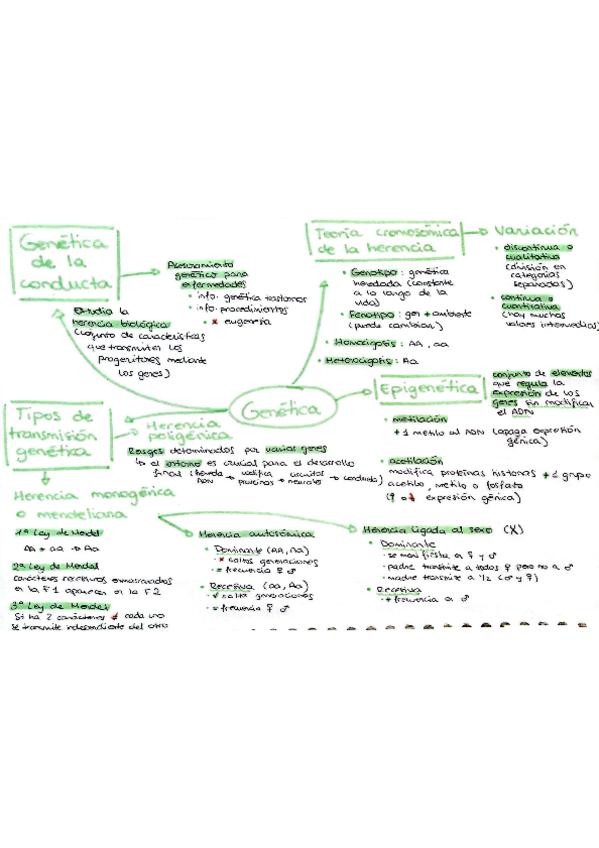 Genética
de la
conducta
Estudia la
herencia biológica
(conjunto de características
que transmiten los
progenitores mediante
los genes)
Asesoramiento
genético para
enfermedades
• info. genética trastornos
• info. procedimientos
• x eugenesia
Teoría cromosómica
de la herencia
• Genotipo: genética
heredada (constante
a lo largo de la
vida)
• Fenotipo: gen + ambiente
(puede cambiar)
• Homocigosis: AA, aa
• Heterocigosis: Aa
Variación
• discontinua o
cualitativa
(división en
categorías
separadas)
• continua o
cuantitativa
(hay muchos
valores intermedios)
Genética
Epigenética
conjunto de elementos
que regula la
expresión de los
genes sin modificar
el ADN
• metilación
+ 1 metilo al ADN (apaga expresión
génica)
• acetilación
modifica proteínas histonas + 1 grupo
acetilo, metilo o fosfato
(↑ o ↓ expresión génica)
Tipos de
transmisión
genética
Herencia
poligénica
Rasgos determinados por varios genes
↳ el entorno es crucial para el desarrollo
final (hereda ADN → codifica proteínas → circuitos neurales → conducta)
Herencia monogénica
o mendeliana
1ª Ley de Mendel
AA + aa → Aa
2ª Ley de Mendel
caracteres recesivos enmascarados
en la F1 aparecen en la F2
3ª Ley de Mendel
Si ha 2 caracteres ≠ cada uno
se transmite independiente del otro
Herencia autosómica
• Dominante (AA, Aa)
· x saltos generaciones
· = frecuencia ♀ ♂
• Recesiva (aa, Aa)
· ✓ salta generaciones
· = frecuencia ♀ ♂
Herencia ligada al sexo (X)
• Dominante
· se manifiesta en ♀ y ♂
· padre transmite a todas ♀ pero no a ♂
· madre transmite a 1/2 (♂ y ♀)
• Recesiva
· + frecuencia en ♂